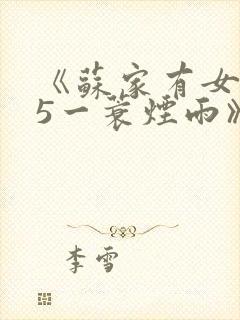 《蘇家有女
5一蓑煙雨》
李雪